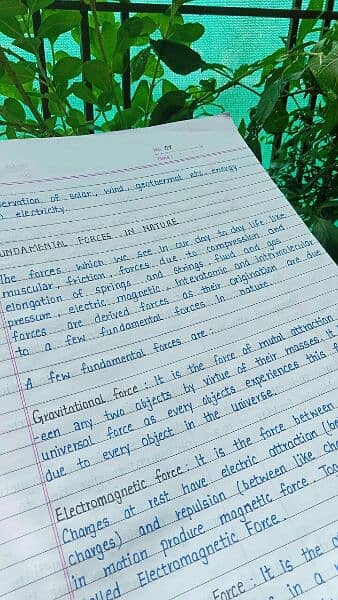 No. 07
Date:
servation of solar, wind, geothermal etc. energy
electricity.
UNDAMENTAL FORCES IN NATURE
The forces which we see in our day to day life like
muscular, friction, forces due to compression and
elongation of springs and strings, fluid and gas
pressure, electric, magnetic, interatomic and intermolecular
forces are derived forces as their origination are due
to a few fundamental forces in nature.
A few fundamental forces are :
Gravitational force : It is the force of mutal attraction
-een any two objects by virtue of their masses. It
universal force as every objects experiences this f
due to every object in the universe.
Electromagnetic force : It is the force between
Charges at rest have electric attraction (be
charges) and repulsion (between like cha
in motion produce magnetic force. Tog
lled Electromagnetic Force.
Force : It is the a
s in a